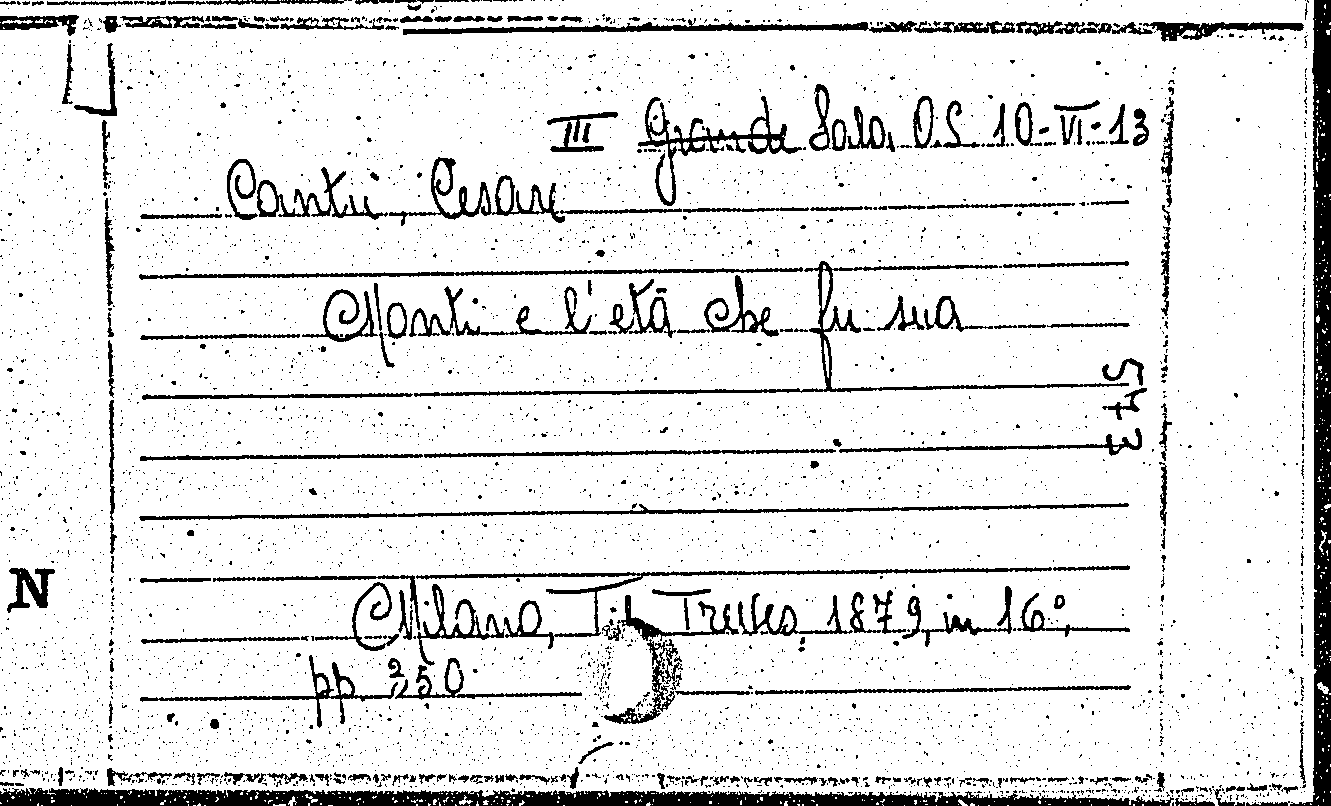 III Grande Sala O.S. 10-VI-13
Cantù, Cesare
Monti e l'età che fu sua
573
N
Milano, Treves, 1879, in 16°,
pp. 350.